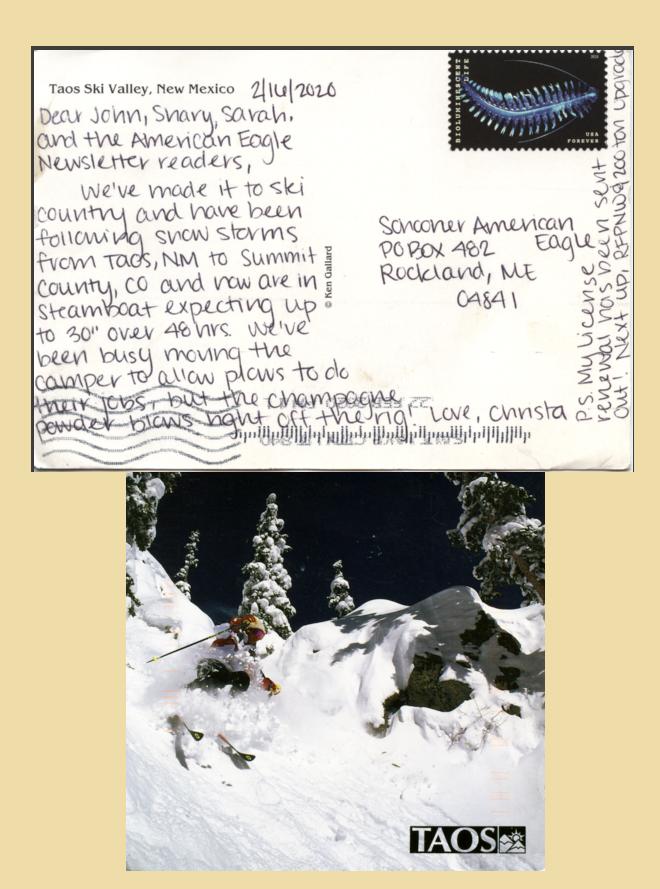 Taos Ski Valley, New Mexico 2/16/2020
Dear John, Shary, Sarah,
and the American Eagle
Newsletter readers,
We've made it to ski
country and have been
following snow storms
from Taos, NM to Summit
County, CO and now are in
Steamboat expecting up
to 30" over 48 hrs. We've
been busy moving the
camper to allow plows to do
their jobs, but the champagne
powder blows right off the rig! Love, Christa
© Ken Gallard
BIOLUMINESCENT
LIFE
USA
FOREVER
Schooner American
Eagle
PO BOX 482
Rockland, ME
04841
P.S. My license
renewal has been sent
out! Next up, RFPNW & 200 ton upgrade
TAOS